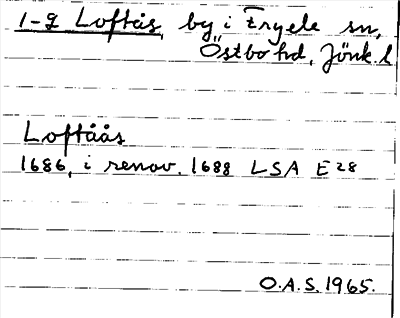 1-2 Loftås, by i Tryele sn,
Östbo hd, Jönk. l
Loftåås
1686, i renov. 1688 LSA E 28
O.A.S. 1965.